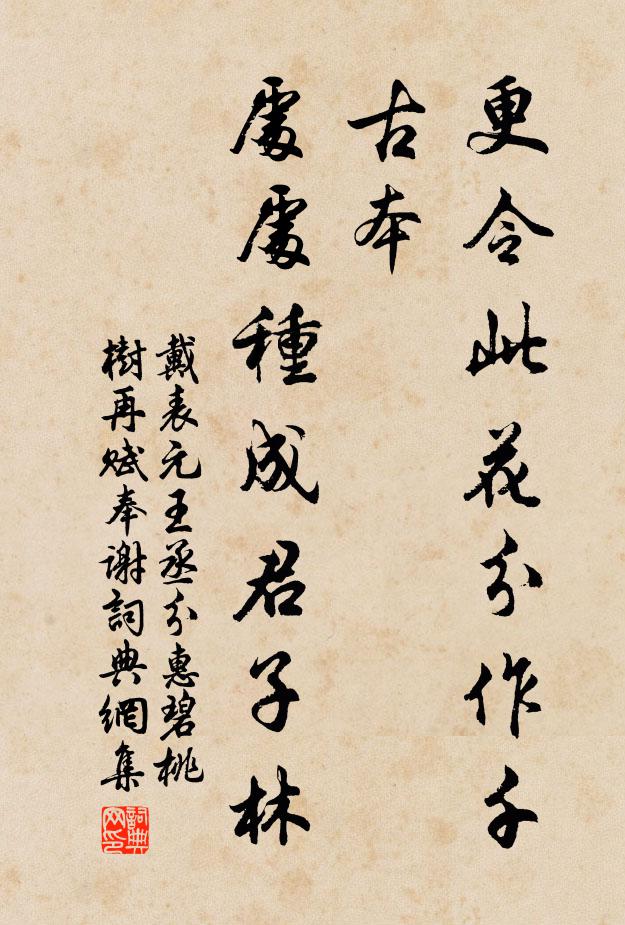 更令此花分作千
古本
處處種成君子林
戴表元王丞分惠碧桃
樹再賦奉謝詞典網集
詞典网印